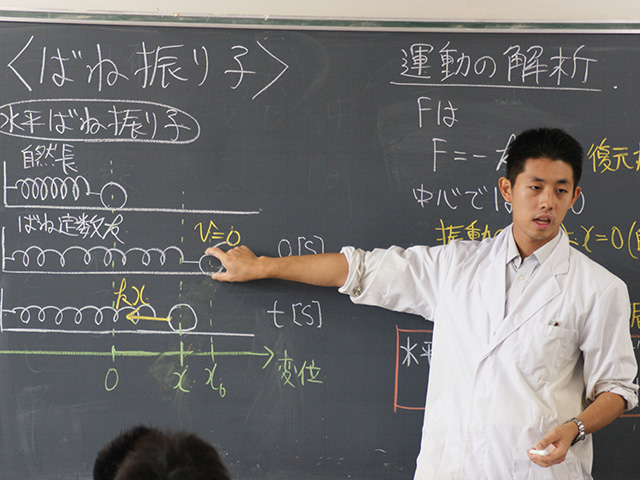 〈ばね振り子〉
水平ばね振り子
自然長
ばね定数k
v=0
0[s]
kx
t[s]
0
x
x₀
変位
運動の解析
Fは
F=-k
復元
中心で
振動の
x=0
水平